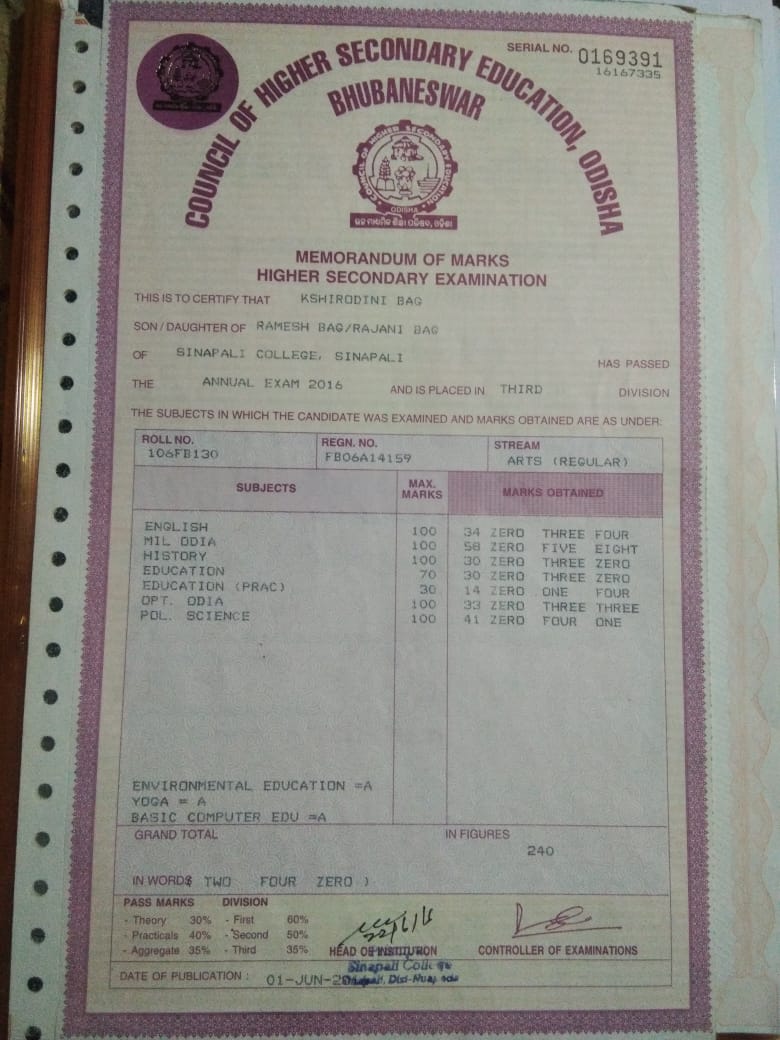 SERIAL NO. 0169391
16167335
COUNCIL OF HIGHER SECONDARY EDUCATION, ODISHA
BHUBANESWAR
COUNCIL OF HIGHER SECONDARY EDUCATION
ODISHA
ଉଚ୍ଚ ମାଧ୍ୟମିକ ଶିକ୍ଷା ପରିଷଦ, ଓଡ଼ିଶା
MEMORANDUM OF MARKS
HIGHER SECONDARY EXAMINATION
THIS IS TO CERTIFY THAT KSHIRODINI BAG
SON / DAUGHTER OF RAMESH BAG/RAJANI BAG
OF SINAPALI COLLEGE, SINAPALI HAS PASSED
THE ANNUAL EXAM 2016 AND IS PLACED IN THIRD DIVISION
THE SUBJECTS IN WHICH THE CANDIDATE WAS EXAMINED AND MARKS OBTAINED ARE AS UNDER:
ROLL NO. REGN. NO. STREAM
106FB130 FB06A14159 ARTS (REGULAR)
SUBJECTS MAX. MARKS MARKS OBTAINED
ENGLISH 100 34 ZERO THREE FOUR
MIL ODIA 100 58 ZERO FIVE EIGHT
HISTORY 100 30 ZERO THREE ZERO
EDUCATION 70 30 ZERO THREE ZERO
EDUCATION (PRAC) 30 14 ZERO ONE FOUR
OPT. ODIA 100 33 ZERO THREE THREE
POL. SCIENCE 100 41 ZERO FOUR ONE
ENVIRONMENTAL EDUCATION =A
YOGA = A
BASIC COMPUTER EDU =A
GRAND TOTAL IN FIGURES
240
IN WORDS TWO FOUR ZERO )
PASS MARKS DIVISION
- Theory 30% - First 60%
- Practicals 40% - Second 50%
- Aggregate 35% - Third 35%
HEAD OF INSTITUTION CONTROLLER OF EXAMINATIONS
Sinapali College
DATE OF PUBLICATION : 01-JUN-